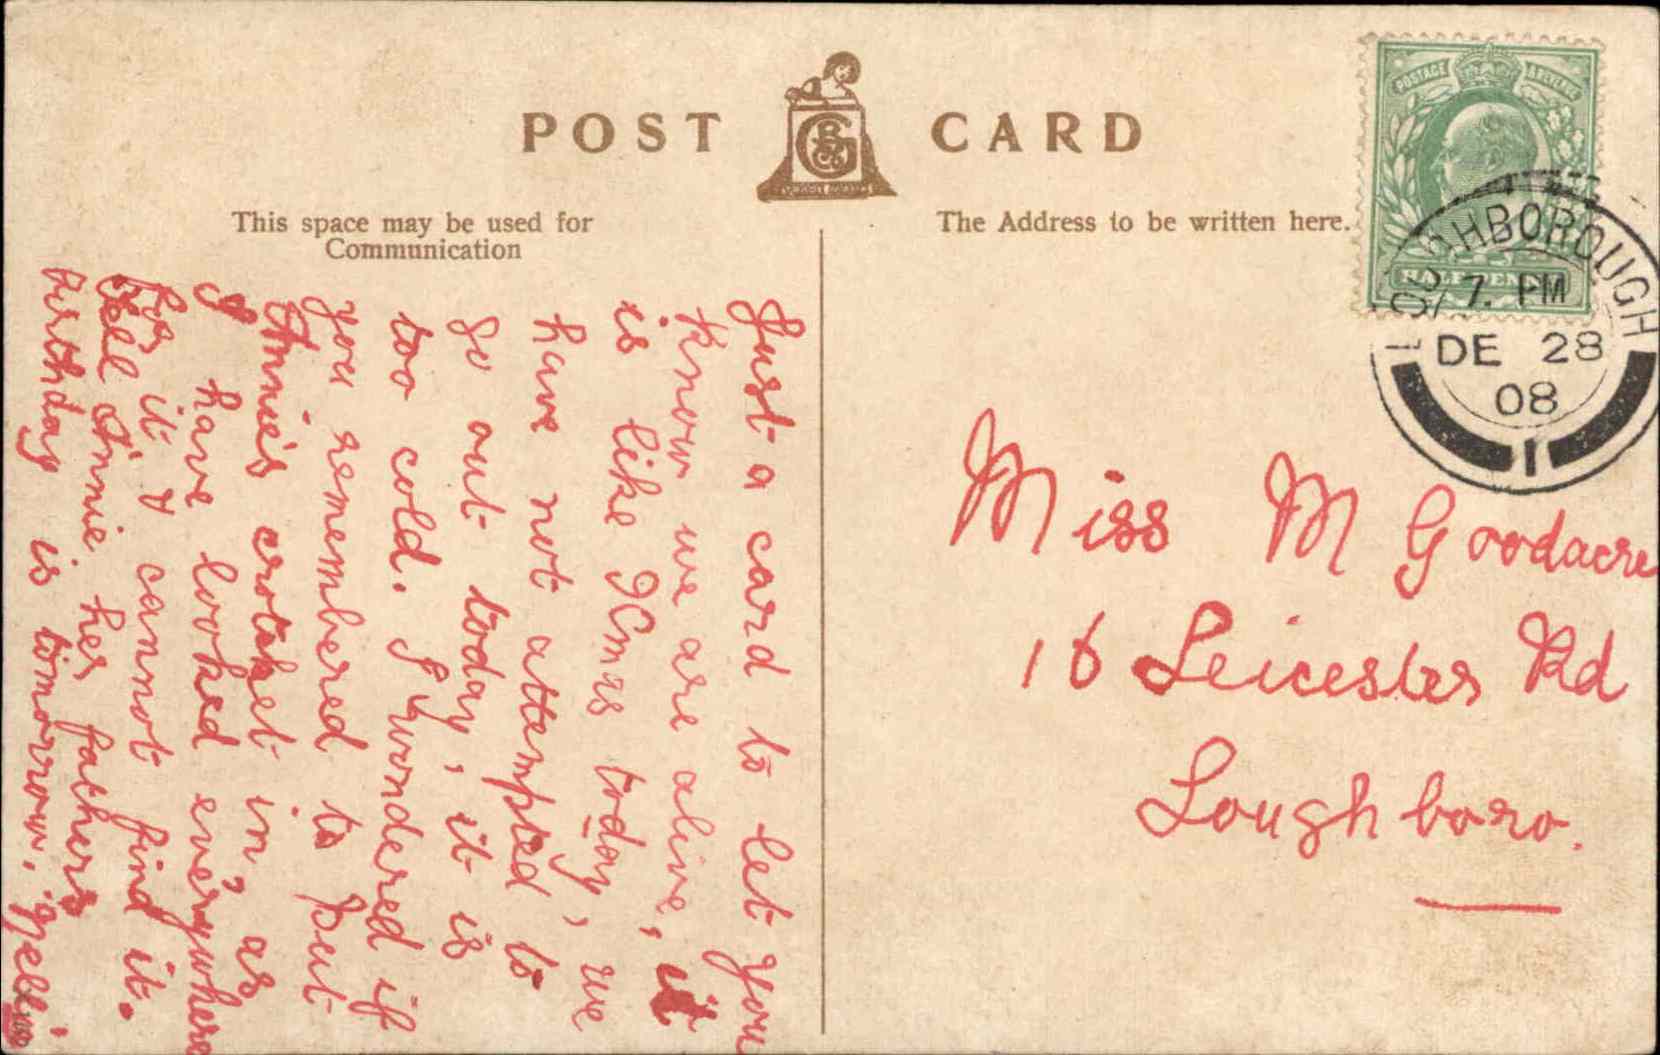 POST CARD
This space may be used for
Communication
The Address to be written here.
POSTAGE & REVENUE
HALFPENNY
LOUGHBOROUGH
7. PM
DE 28
08
1
Just a card to let you
know we are alive, it
is like Xmas today, we
have not attempted to
go out today, it is
too cold. I wondered if
you remembered to put
Annie's crotchet in, as
I have looked everywhere
for it & cannot find it.
Tell Annie her fathers
birthday is tomorrow.
Miss M Goodacre
16 Leicester Rd
Loughboro.